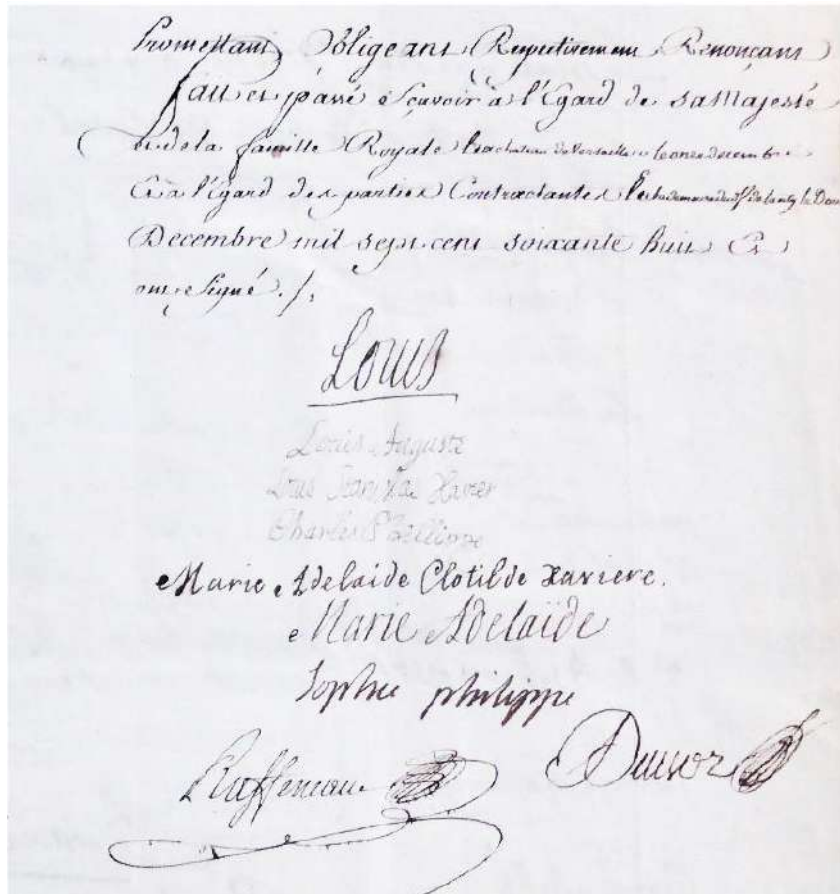 Promettans Obligeans Respectivement Renonçans
fait et passé a Sçavoir à l'Egard de sa Majesté
et de la famille Royale le au chateau de Versailles le onze decembre
Et à l'Egard des parties Contractantes le
Decembre mil sept cent soixante huit Et
ont Signé ./.
Louis
Louis Auguste
Louis Stanislas Xavier
Charles Philippe
Marie Adelaide Clotilde Xaviere.
Marie Adelaïde
Sophie philippe
Raffeneau